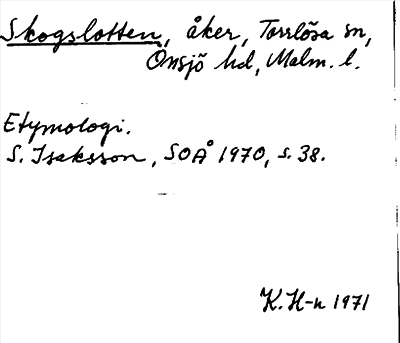 Skogslotten, åker, Torrlösa sn,
Onsjö hd, Malm. l.
Etymologi.
S. Isaksson, SOÅ 1970, s. 38.
K. H-n 1971